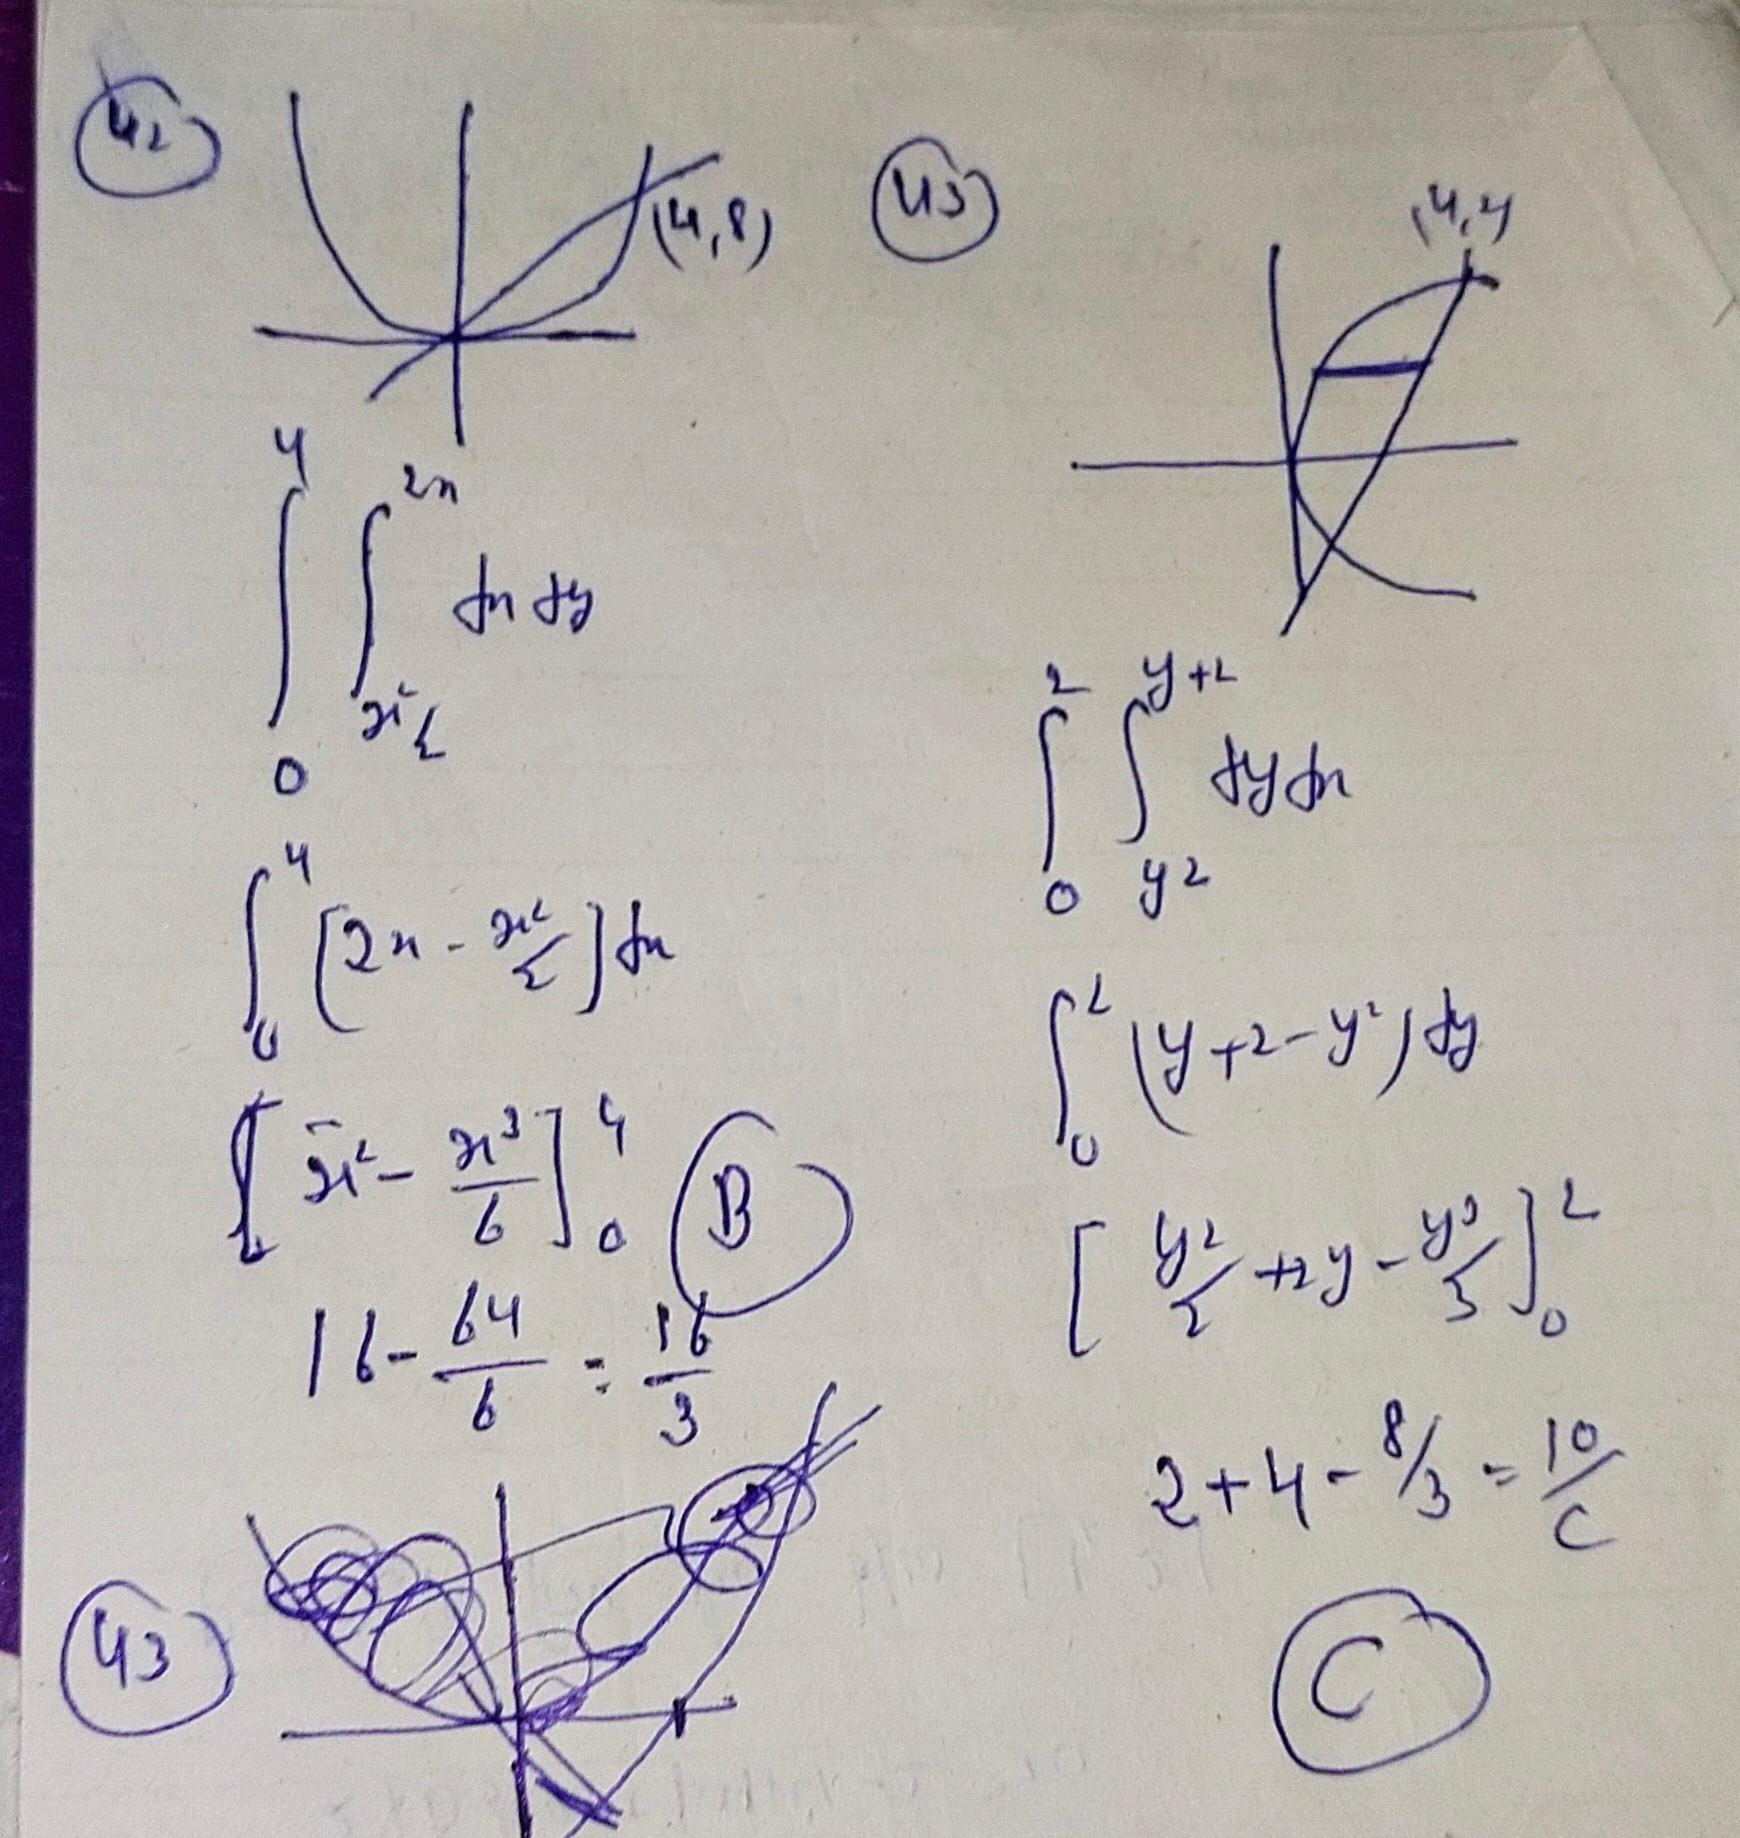 42
(4,8)
∫₀⁴ ∫_{x²/2}^{2x} dx dy
∫₀⁴ [2x - x²/2] dx
[x² - x³/6]₀⁴
B
16 - 64/6 = 16/3
43
43
(4,4)
∫₀² ∫_{y2}^{y+2} dy dx
∫₀² (y+2-y²) dy
[y²/2 + 2y - y³/3]₀²
2+4-8/3 = 10/c
C